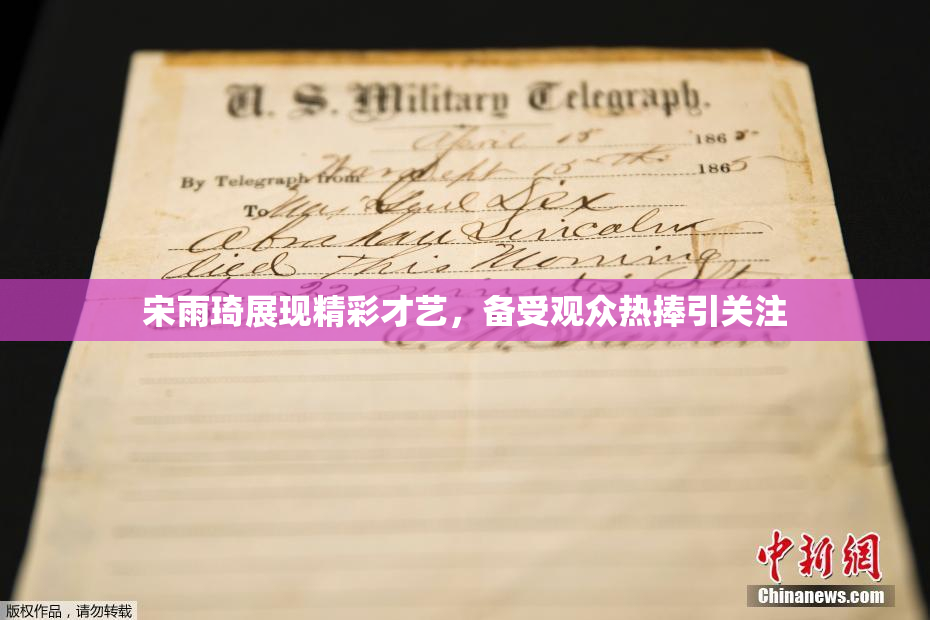 U. S. Military Telegraph.
April 15 1865.
By Telegraph from War Dept 15th 1865
To Maj Genl Dix
Abraham Lincoln
died This Morning
22 minutes after
宋雨琦展现精彩才艺，备受观众热捧引关注
E. M. Stanton
中新网
Chinanews.com
版权作品，请勿转载